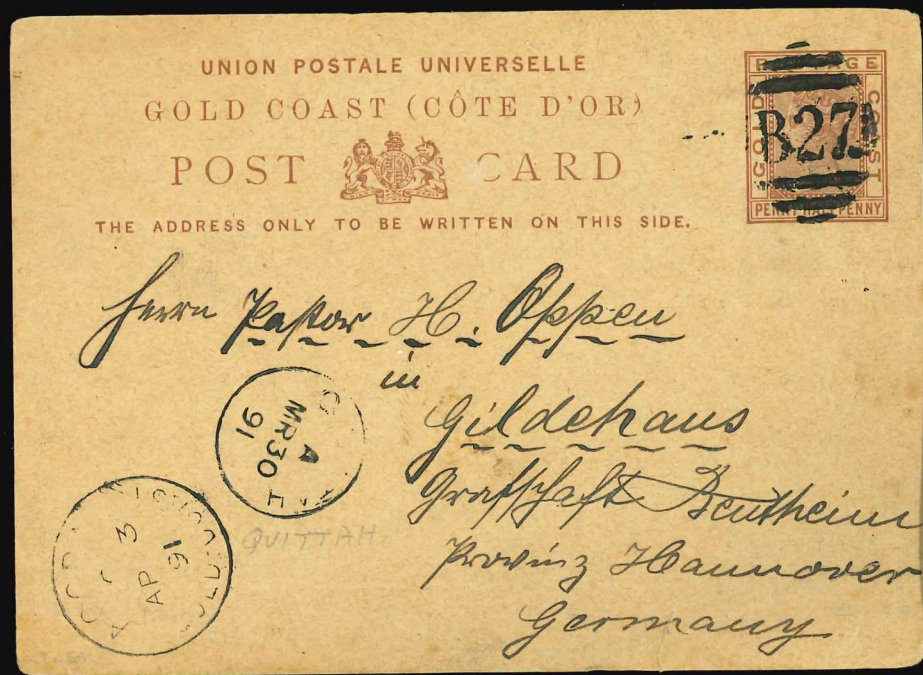 UNION POSTALE UNIVERSELLE
GOLD COAST (CÔTE D'OR)
POST CARD
THE ADDRESS ONLY TO BE WRITTEN ON THIS SIDE.
GOLD COAST
PENNY HALF PENNY
B27
Herrn Pastor H. Oppen
in
Gildehaus
Grafschaft Bentheim
Provinz Hannover
Germany
A
MR30
91
QUITTAH
ACCRA
C
AP 3
91